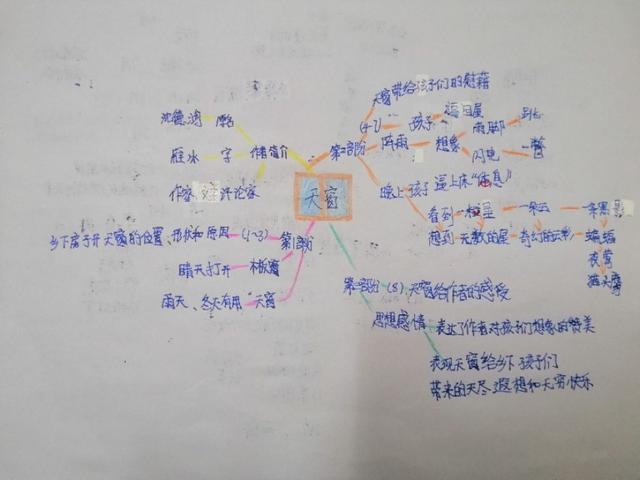 天窗
沈德鸿 原名
雁冰 字 作者简介
作家 评论家
第一部分 (1~3) 乡下房子开天窗的位置、形状和原因
晴天打开 木板窗
雨天、冬天有用 天窗
第二部分 (4-7)
天窗带给孩子们的慰藉
阵雨 孩子 逼回屋
想象 雨脚 卜落卜落跳
闪电 一瞥
晚上 孩子 逼上床"休息"
看到 一粒星 一朵云 一条黑影
想到 无数的星 奇幻的云彩 蝙蝠
夜莺
猫头鹰
第三部分 (8) 天窗给作者的感受
思想感情 表达了作者对孩子们想象的赞美
表现天窗给乡下孩子们
带来的无尽遐想和无穷快乐